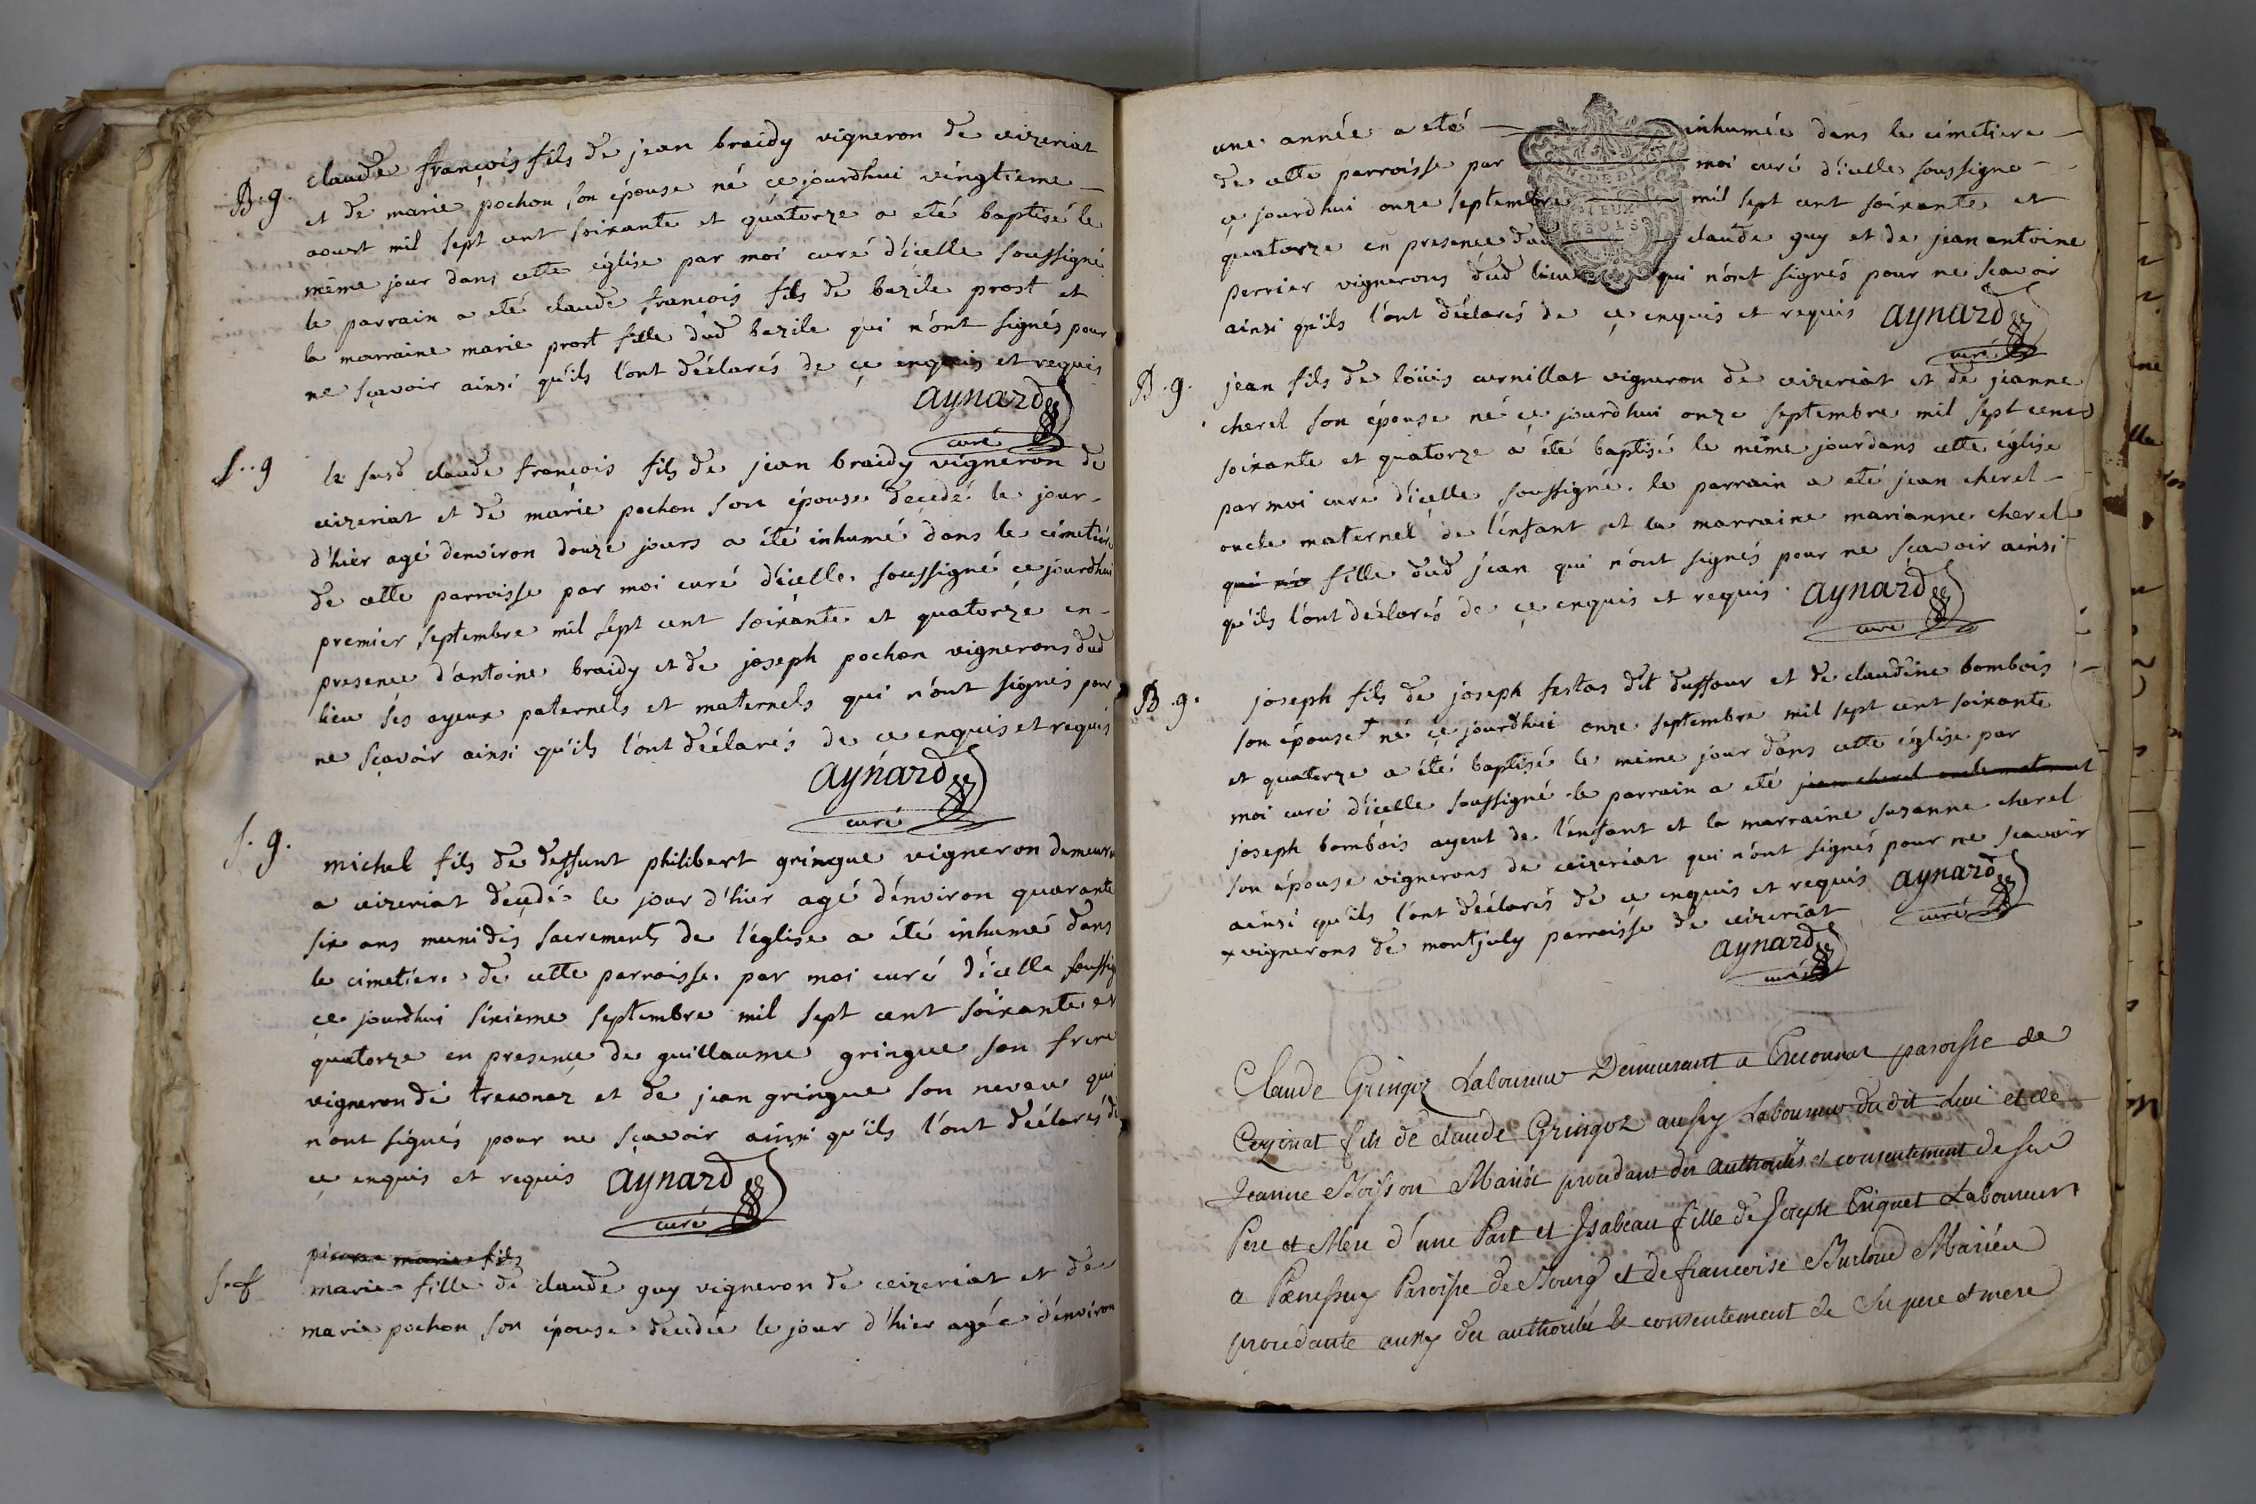 B. g. claude françois fils de jean braidy vigneron de ceizeriat
et de marie pochon son épouse né ce jourdhui vingtieme
aoust mil sept cent soixante et quatorze a eté baptisé le
même jour dans cette église par moi curé d'icelle soussigné
le parrain a eté claude françois fils de bazile prost et
la marraine marie prost fille dud bazile qui n'ont signés pour
ne sçavoir ainsi qu'ils l'ont déclarés de ce enquis et requis
aynard
curé
S. g le susd claude françois fils de jean braidy vigneron de
ceizeriat et de marie pochon son épouse decedé le jour
d'hier agé denviron douze jours a été inhumé dans le cimetiere
de cette parroisse par moi curé d'icelle soussigné ce jourdhui
premier septembre mil sept cent soixante et quatorze en
presence d'antoine braidy et de joseph pochon vignerons dud
lieu ses ayeux paternels et maternels qui n'ont signés pour
ne sçavoir ainsi qu'ils l'ont déclarés de ce enquis et requis
aynard
curé
S. g. michel fils de deffunt philibert gringue vigneron demeurt
a ceizeriat decedé le jour d'hier agé d'environ quarante
six ans muni dës sacrements de l'église a été inhumé dans
le cimetiere de cette parroisse par moi curé d'icelle soussig
ce jourdhui sixieme septembre mil sept cent soixante et
quatorze en presence de guillaume gringue son frere
vigneron de treconaz et de jean gringue son neveu qui
n'ont signés pour ne sçavoir ainsi qu'ils l'ont déclarés de
ce enquis et requis aynard
curé
pierre marie fils
S. f marie fille de claude guy vigneron de ceizeriat et de
marie pochon son épouse decedée le jour d'hier agée d'environ
une année a eté inhumée dans le cimetiere
de cette parroisse par moi curé d'icelle soussigné
ce jourdhui onze septembre mil sept cent soixante et
quatorze en presence dud claude guy et de jean antoine
perrier vignerons dud lieu qui n'ont signés pour ne sçavoir
ainsi qu'ils l'ont déclarés de ce enquis et requis aynard
curé
B. g. jean fils de loüis curnillat vigneron de ceizeriat et de jeanne
cherel son épouse né ce jourdhui onze septembre mil sept cent
soixante et quatorze a été baptisé le même jour dans cette église
par moi curé d'icelle soussigné. le parrain a eté jean cherel
oncle maternel de l'enfant et la marraine marianne cherel
qui n'o fille dud jean qui n'ont signés pour ne sçavoir ainsi
qu'ils l'ont déclarés de ce enquis et requis. aynard
curé
B. g. joseph fils de joseph festas dit duffour et de claudine bombois
son épouse né ce jourdhui onze septembre mil sept cent soixante
et quatorze a été baptisé le même jour dans cette église par
moi curé d'icelle soussigné le parrain a eté jean cherel oncle maternel
joseph bombois ayeul de l'enfant et la marraine suzanne cherel
son épouse vignerons de ceizeriat qui n'ont signés pour ne scavoir
ainsi qu'ils l'ont déclarés de ce enquis et requis aynard
curé
x vignerons de montjuly parroisse de ceizeriat
aynard
curé
Claude Gringoz Laboureur Demeurant a Treconnaz paroisse de
Ceyziriat fils de claude Gringoz aussy Laboureur du dit Lieu et de
Jeanne Moisson Mariés procedant des authorités et consentement de ses
Pere et Mere d'une Part et Isabeau fille de Joseph Triquet Laboureur
a Pænessuy Paroisse de Bourg et de francoise Burloud Mariés
procedante aussy des authorités & consentement de ses pere et mere